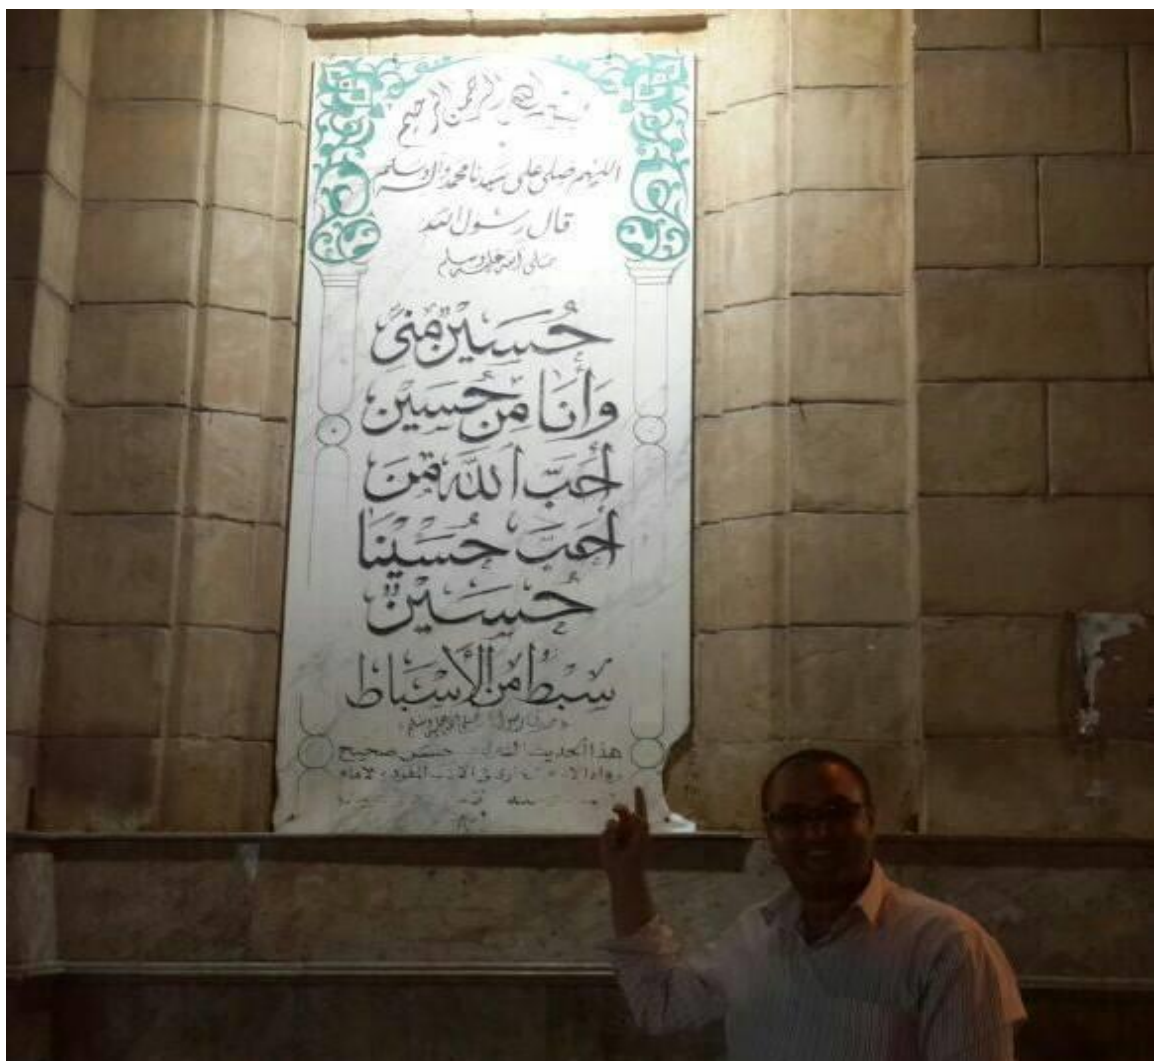 بسم الله الرحمن الرحيم
اللهم صلى على سيدنا محمد وآله وسلم
قال رسول الله
صلى الله عليه وسلم
حُسَيْنٌ مِنِّي
وَأَنَا مِنْ حُسَيْن
أَحَبَّ اللَّهَ مَنْ
أَحَبَّ حُسَيْنَا
حُسَيْنٌ
سِبْطٌ مِنَ الْأَسْبَاطِ
صلى الله عليه وسلم
هذا الحديث حسن صحيح
رواه فى الأدب المفرد